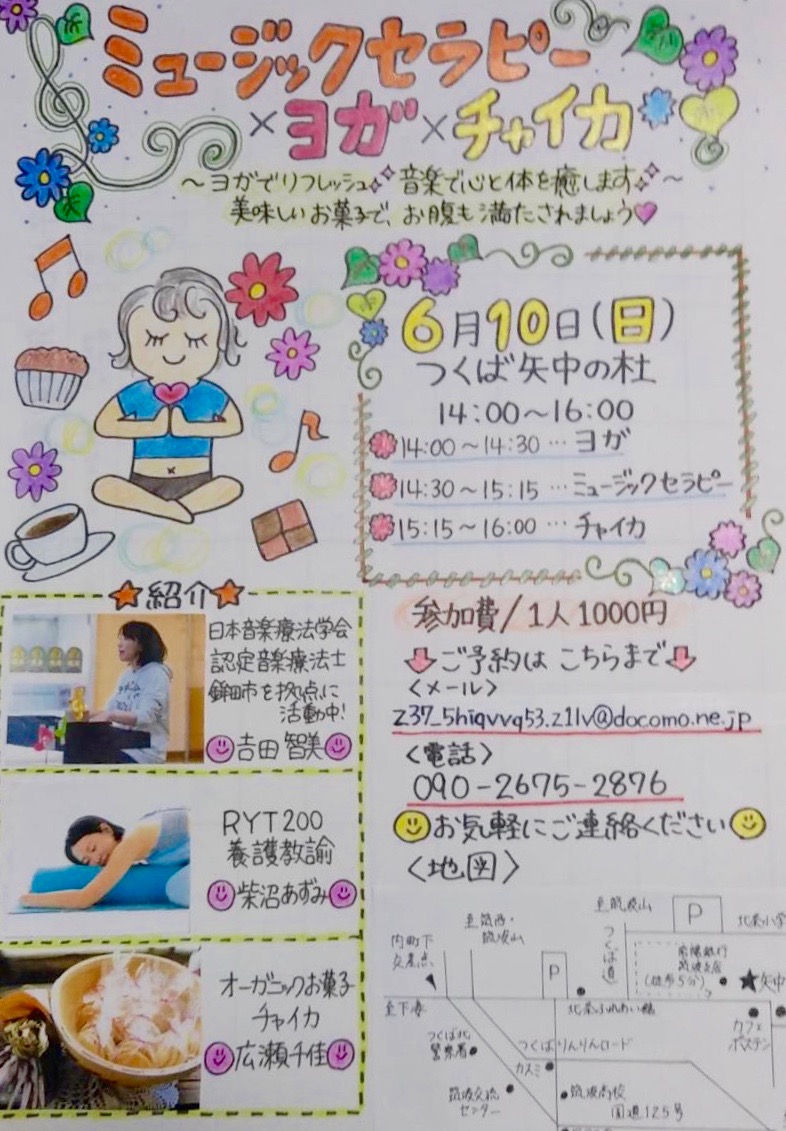 ミュージックセラピー
×ヨガ×チャイカ
～ヨガでリフレッシュ 音楽で心と体を癒します～
美味しいお菓子で、お腹も満たされましょう
6月10日(日)
つくば矢中の杜
14:00～16:00
14:00～14:30…ヨガ
14:30～15:15…ミュージックセラピー
15:15～16:00…チャイカ
紹介
日本音楽療法学会
認定音楽療法士
鉾田市を拠点に
活動中!
吉田智美
RYT200
養護教諭
柴沼あずみ
オーガニックお菓子
チャイカ
広瀬千佳
参加費/1人1000円
ご予約はこちらまで
<メール>
z37_5hiqvvq53.z1lv@docomo.ne.jp
<電話>
090-2675-2876
お気軽にご連絡ください
<地図>
至筑波山
P
北条小学
至筑西・
筑波山
内町下
交差点
P
つくば道
筑波支店
(徒歩5分)
★矢中
至下妻
北条ふれあい館
カフェ
ポステン
つくば北
警察署
つくばりんりんロード
カスミ
筑波交流
センター
筑波高校
国道125号